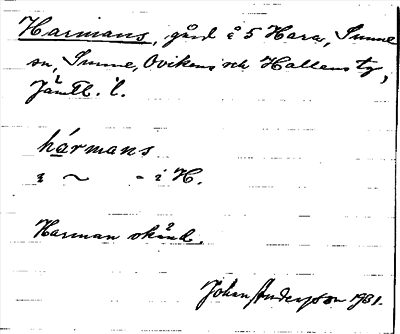 Harmans, gård å 5 Hara, Sunne
sn, Sunne, Ovikens och Hallens tg,
Jämtl. l.
hármans
i ~ - i H.
Harman okänd.
Johan Anderson 1931.